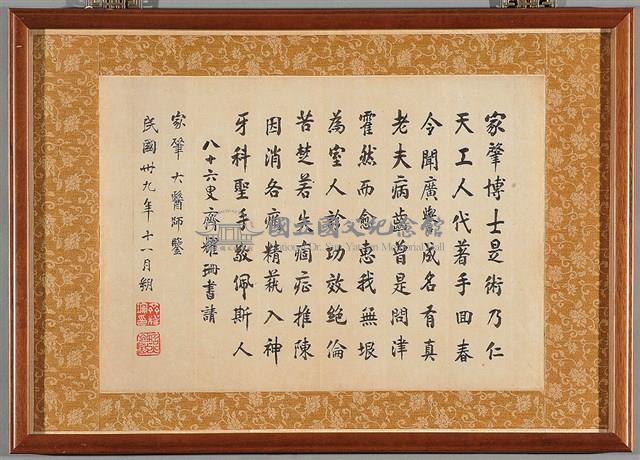 家肇博士是術乃仁
天工人代著手回春
令聞廣譽成名有真
老夫病齒曾是問津
霍然而愈惠我無垠
為室人診功效絕倫
苦楚若失痼症推陳
因消各瘀精萟入神
牙科聖手敬佩斯人
八十六叟齊耀珊書請
家肇大醫師鑒
民國卅九年十一月朔
國立國父紀念館
National Dr. Sun Yat-sen Memorial Hall